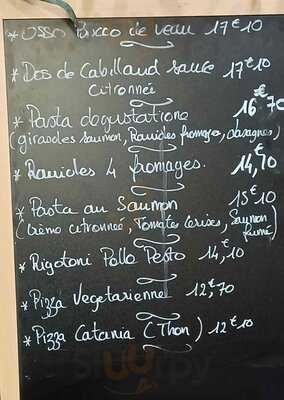 * Osso Bucco de veau 17€10
* Dos de Cabillaud sauce 17€10
citronnée
* Pasta degustatione 16€70
(girasoles saumon, Ravioles fromage, lasagnes)
* Ravioles 4 fromages. 14,€70
* Pasta au Saumon 15€10
(crème citronnée, Tomates cerises, Saumon
fumé)
* Rigotoni Pollo Pesto 14,€10
* Pizza Vegetarienne 12,€70
* Pizza Catania (Thon) 12€10
Sluurpy